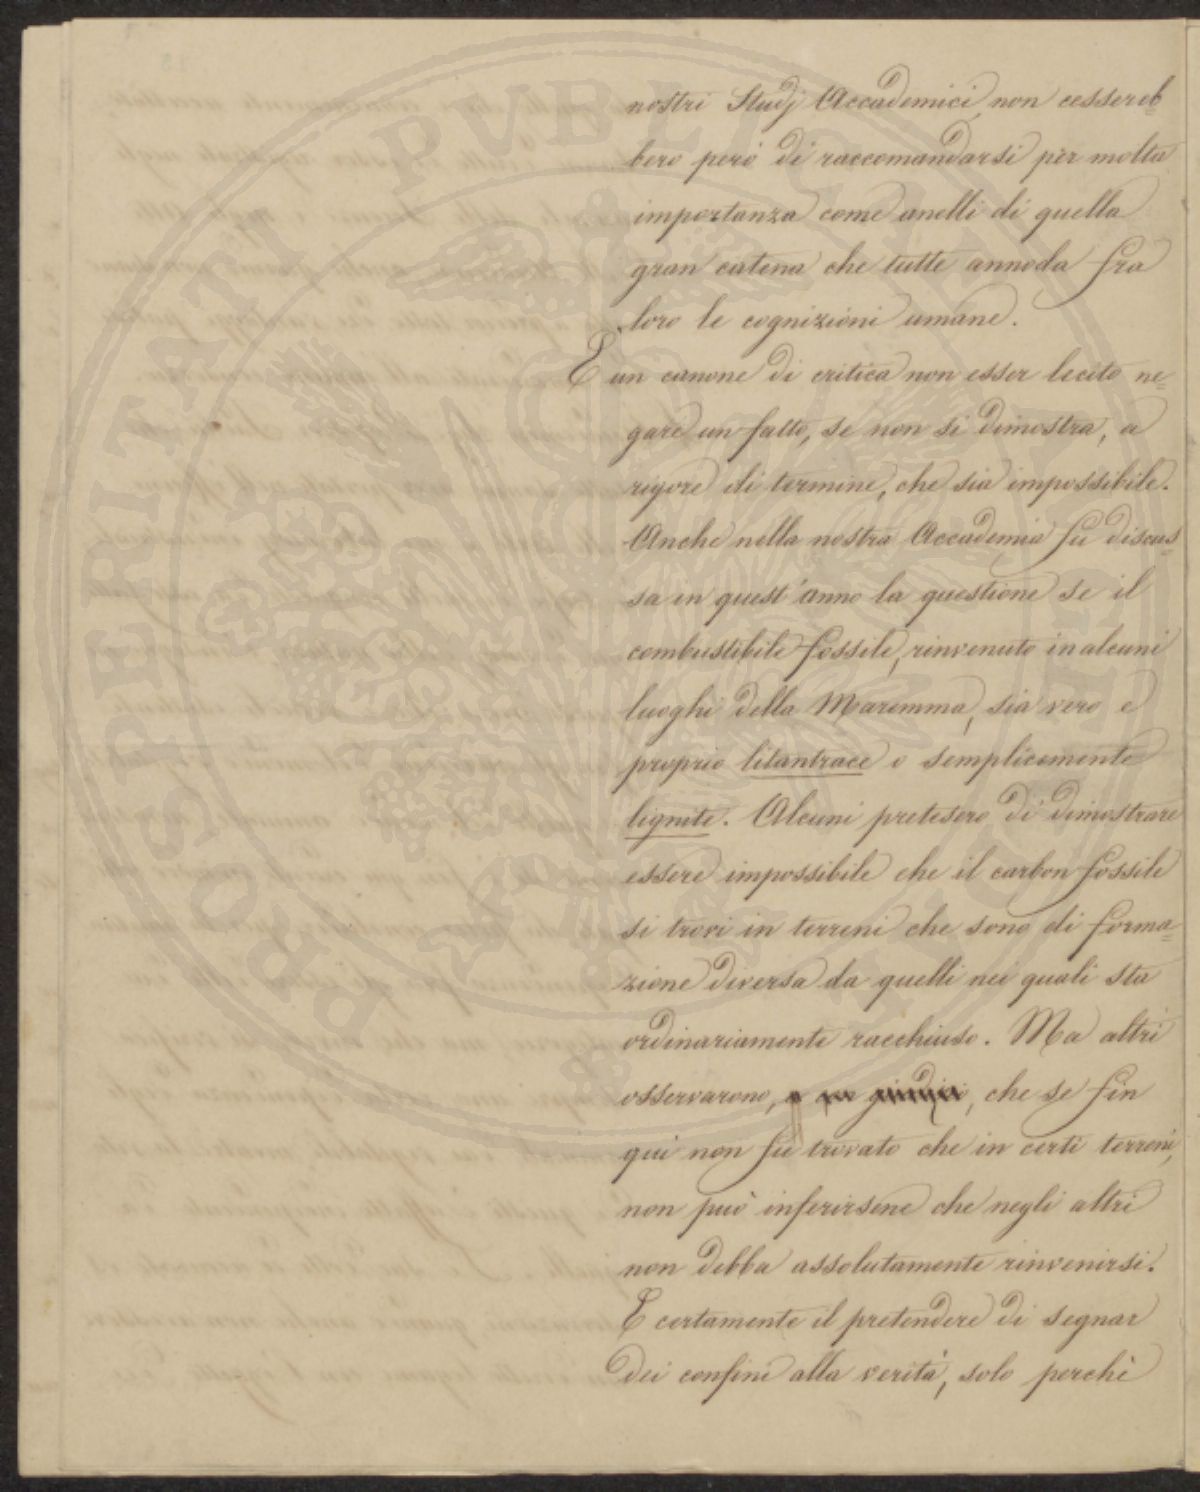 nostri Studj Accademici, non cessereb=
bero però di raccomandarsi per molta
importanza come anelli di quella
gran catena che tutte annoda fra
loro le cognizioni umane.
E un canone di critica non esser lecito ne=
gare un fatto, se non si dimostra, a
rigore di termine, che sia impossibile.
Anche nella nostra Accademia fu discus=
sa in quest'anno la questione se il
combustibile fossile, rinvenuto in alcuni
luoghi della Maremma, sia vero e
proprio litantrace o semplicemente
lignite. Alcuni pretesero di dimostrare
essere impossibile che il carbon fossile
si trovi in terreni che sono di forma=
zione diversa da quelli nei quali sta
ordinariamente racchiuso. Ma altri
osservarono, che se fin
qui non fu trovato che in certi terreni,
non può inferirsene che negli altri
non debba assolutamente rinvenirsi.
E certamente il pretendere di segnar
dei confini alla verità, solo perchè
PROSPERITATI PUBLICAE